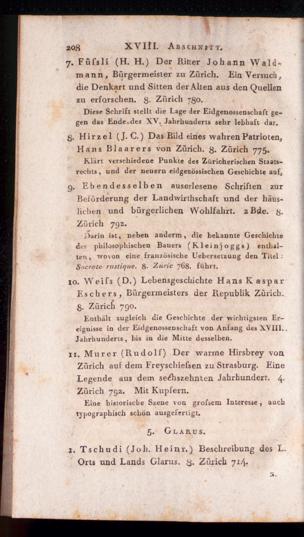 208 XVIII. Abschnitt.
7. Füfsli (H. H.) Der Ritter Johann Wald-
mann, Bürgermeister zu Zürich. Ein Versuch,
die Denkart und Sitten der Alten aus den Quellen
zu erforschen. 8. Zürich 780.
Diese Schrift stellt die Lage der Eidgenossenschaft ge-
gen das Ende des XV. Jahrhunderts sehr lebhaft dar.
8. Hirzel (J. C.) Das Bild eines wahren Patrioten,
Hans Blaarers von Zürich. 8. Zürich 775.
Klärt verschiedene Punkte des Züricherischen Staats-
rechts, und der neuern eidgenössischen Geschichte auf.
9. Ebendesselben auserlesene Schriften zur
Beförderung der Landwirthschaft und der häus-
lichen und bürgerlichen Wohlfahrt. 2 Bde. 8.
Zürich 792.
Darin ist, neben anderm, die bekannte Geschichte
des philosophischen Bauers (Kleinjoggs) enthal-
ten, wovon eine französische Uebersetzung den Titel:
Socrate rustique. 8. Zuric 768. führt.
10. Weifs (D.) Lebensgeschichte Hans Kaspar
Eschers, Bürgermeisters der Republik Zürich.
8. Zürich 790.
Enthält zugleich die Geschichte der wichtigsten Er-
eignisse in der Eidgenossenschaft von Anfang des XVIII.
Jahrhunderts, bis in die Mitte desselben.
11. Murer (Rudolf) Der warme Hirsbrey von
Zürich auf dem Freyschiefsen zu Strasburg. Eine
Legende aus dem sechszehnten Jahrhundert. 4.
Zürich 792. Mit Kupfern.
Eine historische Szene von grofsem Interesse, auch
typographisch schön ausgefertigt.
5. Glarus.
1. Tschudi (Joh. Heinr.) Beschreibung des L.
Orts und Lands Glarus. 8. Zürich 714.
2.